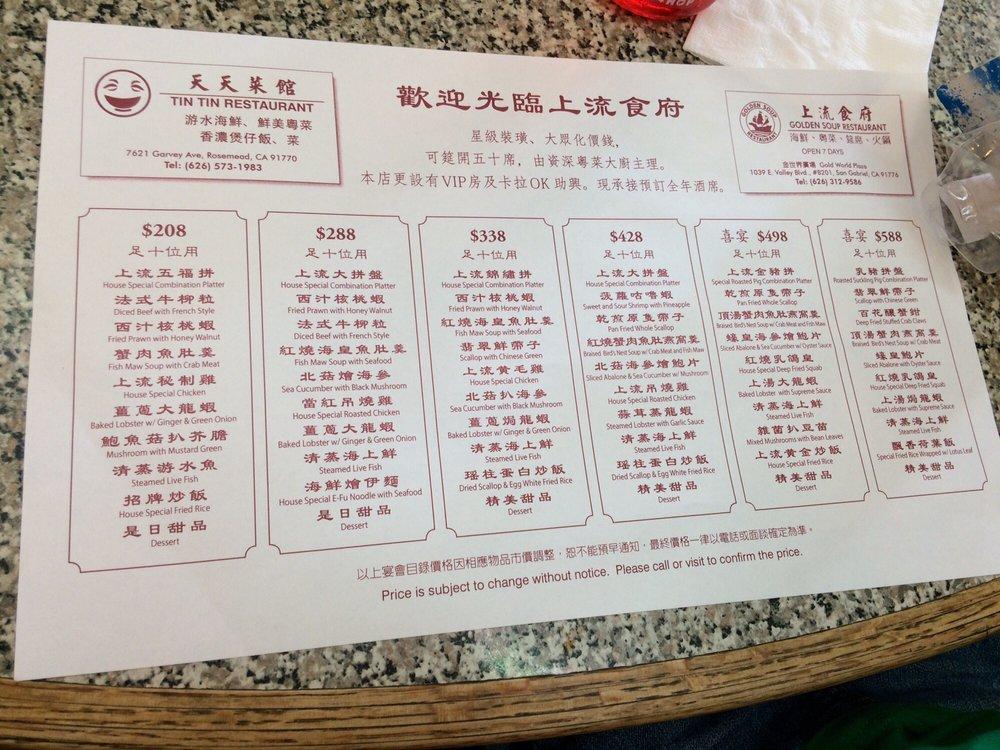 天天菜館
TIN TIN RESTAURANT
游水海鮮、鮮美粵菜
香濃煲仔飯、菜
7621 Garvey Ave, Rosemead, CA 91770
Tel: (626) 573-1983
歡迎光臨上流食府
星級裝璜、大眾化價錢，
可筵開五十席，由資深粵菜大廚主理。
本店更設有VIP房及卡拉OK助興。現承接預訂全年酒席。
GOLDEN SOUP
RESTAURANT
上流食府
GOLDEN SOUP RESTAURANT
海鮮、粵菜、筵席、火鍋
OPEN 7 DAYS
金世界廣場 Gold World Plaza
1039 E. Valley Blvd., #B201, San Gabriel, CA 91776
Tel: (626) 312-9586
$208
足十位用
上流五福拼
House Special Combination Platter
法式牛柳粒
Diced Beef with French Style
西汁核桃蝦
Fried Prawn with Honey Walnut
蟹肉魚肚羹
Fish Maw Soup with Crab Meat
上流秘制雞
House Special Chicken
薑蔥大龍蝦
Baked Lobster w/ Ginger & Green Onion
鮑魚菇扒芥膽
Mushroom with Mustard Green
清蒸游水魚
Steamed Live Fish
招牌炒飯
House Special Fried Rice
是日甜品
Dessert
$288
足十位用
上流大拼盤
House Special Combination Platter
西汁核桃蝦
Fried Prawn with Honey Walnut
法式牛柳粒
Diced Beef with French Style
紅燒海皇魚肚羹
Fish Maw Soup with Seafood
北菇燴海參
Sea Cucumber with Black Mushroom
當紅吊燒雞
House Special Roasted Chicken
薑蔥大龍蝦
Baked Lobster w/ Ginger & Green Onion
清蒸海上鮮
Steamed Live Fish
海鮮燴伊麵
House Special E-Fu Noodle with Seafood
是日甜品
Dessert
$338
足十位用
上流錦繡拼
House Special Combination Platter
西汁核桃蝦
Fried Prawn with Honey Walnut
紅燒海皇魚肚羹
Fish Maw Soup with Seafood
翡翠鮮帶子
Scallop with Chinese Green
上流黃毛雞
House Special Chicken
北菇扒海參
Sea Cucumber with Black Mushroom
薑蔥焗龍蝦
Baked Lobster w/ Ginger & Green Onion
清蒸海上鮮
Steamed Live Fish
瑤柱蛋白炒飯
Dried Scallop & Egg White Fried Rice
精美甜品
Dessert
$428
足十位用
上流大拼盤
House Special Combination Platter
菠蘿咕嚕蝦
Sweet and Sour Shrimp with Pineapple
乾煎原隻帶子
Pan Fried Whole Scallop
紅燒蟹肉魚肚燕窩羹
Braised Bird's Nest Soup w/ Crab Meat and Fish Maw
北菇海參燴鮑片
Sliced Abalone & Sea Cucumber w/ Mushroom
上流吊燒雞
House Special Roasted Chicken
蒜茸蒸龍蝦
Steamed Lobster with Garlic Sauce
清蒸海上鮮
Steamed Live Fish
瑤柱蛋白炒飯
Dried Scallop & Egg White Fried Rice
精美甜品
Dessert
喜宴 $498
足十位用
上流金豬拼
Special Roasted Pig Combination Platter
乾煎原隻帶子
Pan Fried Whole Scallop
頂湯蟹肉魚肚燕窩羹
Braised Bird's Nest Soup w/ Crab Meat and Fish Maw
蠔皇海參燴鮑片
Sliced Abalone & Sea Cucumber w/ Oyster Sauce
紅燒乳鴿皇
House Special Deep Fried Squab
上湯大龍蝦
Baked Lobster with Supreme Sauce
清蒸海上鮮
Steamed Live Fish
雜菌扒豆苗
Mixed Mushrooms with Bean Leaves
上流黃金炒飯
House Special Fried Rice
精美甜品
Dessert
喜宴 $588
足十位用
乳豬拼盤
Roasted Suckling Pig Combination Platter
翡翠鮮帶子
Scallop with Chinese Green
百花釀蟹鉗
Deep Fried Stuffed Crab Claws
頂湯蟹肉燕窩羹
Braised Bird's Nest Soup w/ Crab Meat
蠔皇鮑片
Sliced Abalone with Oyster Sauce
紅燒乳鴿皇
House Special Deep Fried Squab
上湯焗龍蝦
Baked Lobster with Supreme Sauce
清蒸海上鮮
Steamed Live Fish
飄香荷葉飯
Special Fried Rice Wrapped w/ Lotus Leaf
精美甜品
Dessert
以上宴會目錄價格因相應物品市價調整，恕不能預早通知，最終價格一律以電話或面談確定為準。
Price is subject to change without notice. Please call or visit to confirm the price.